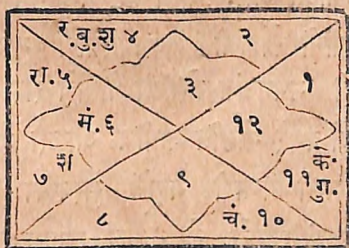 र.बु.शु ४ २
रा.५ ३ १
मं.६ १२
७ श ९ ११ के.
गु.
८ चं. १०